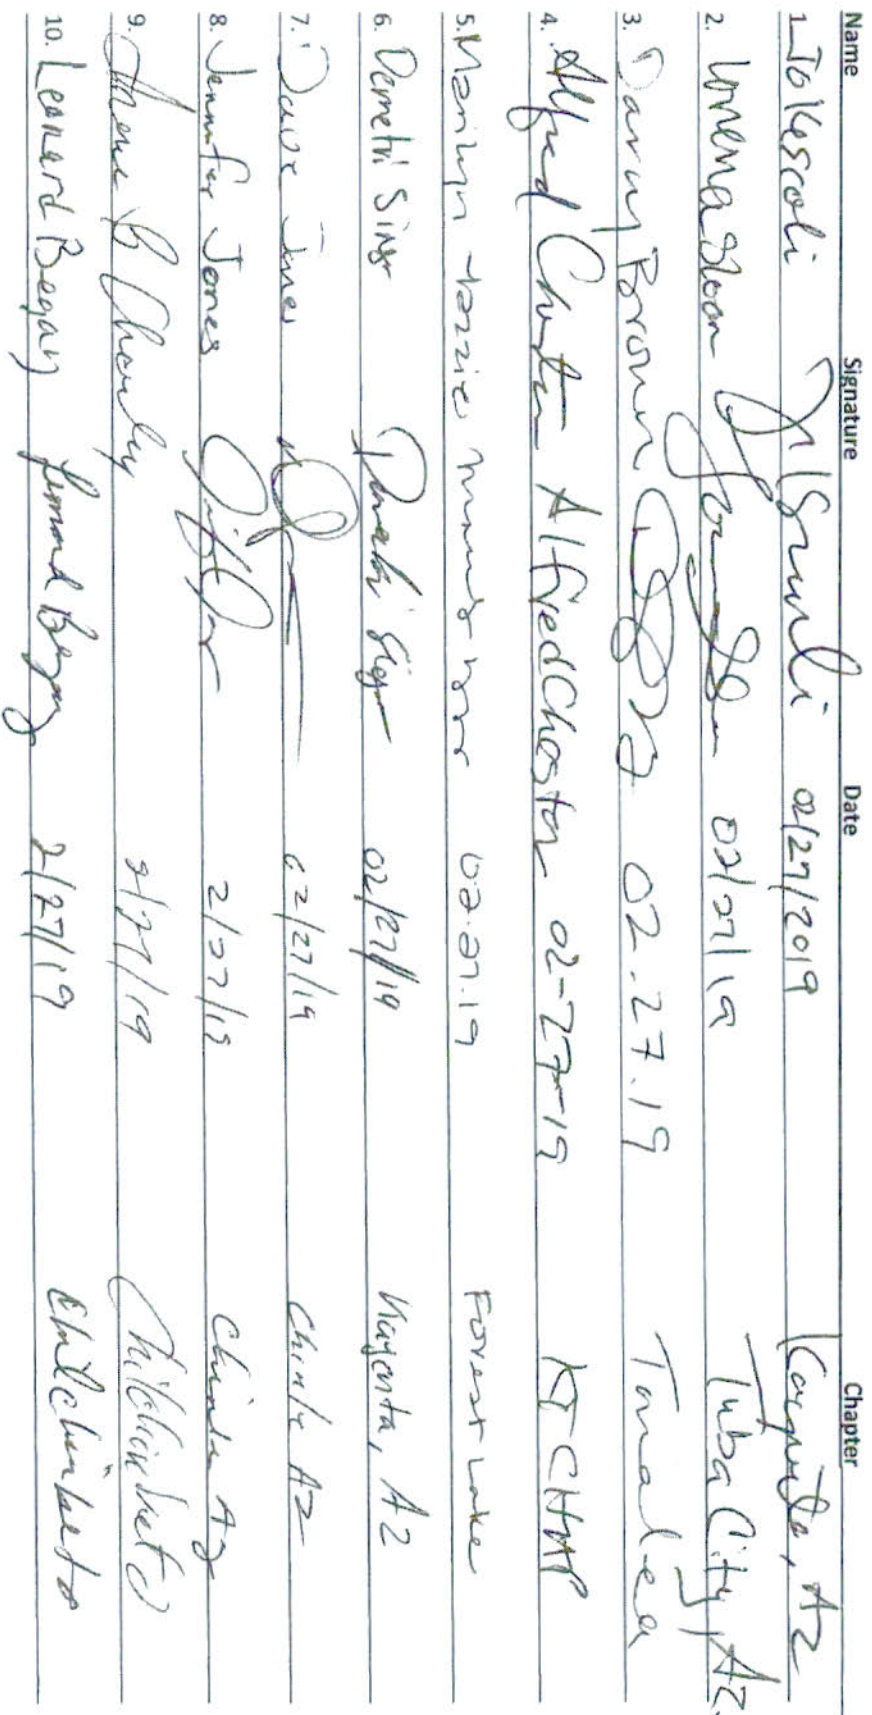 Name Signature Date Chapter
1. Jo Kescoli 02/27/2019 Kayenta, AZ
2. 02/27/19 Tuba City, AZ.
3. Darryl Brown 02.27.19 Tonalea
4. Alfred Chester Alfred Chester 02-27-19 KT CHAP
5. Marilyn Yazzie 02.27.19 Forest Lake
6. Demetri Singer 02/27/19 Kayenta, AZ
7. Dave Jones 02/27/19 Chinle AZ
8. Jennifer Jones 2/27/19 Chinle AZ
9. B Charley 2/27/19 Chilchinbeto
10. Leonard Begay Leonard Begay 2/27/19 Chilchinbeto